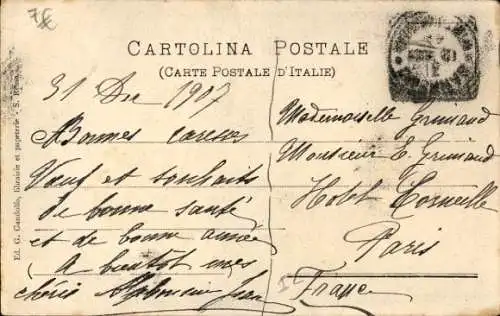 7
CARTOLINA POSTALE
(CARTE POSTALE D'ITALIE)
31 Dec 1907
Bonnes caresses
Vœux et souhaits
de bonne santé
et de bonne année
A bientôt mes
chéris
Mademoiselle Grimaud
Monsieur E. Grimaud
Hotel Corneille
Paris
France
Ed. G. Gandolfo, librairie et papeterie - S. Remo